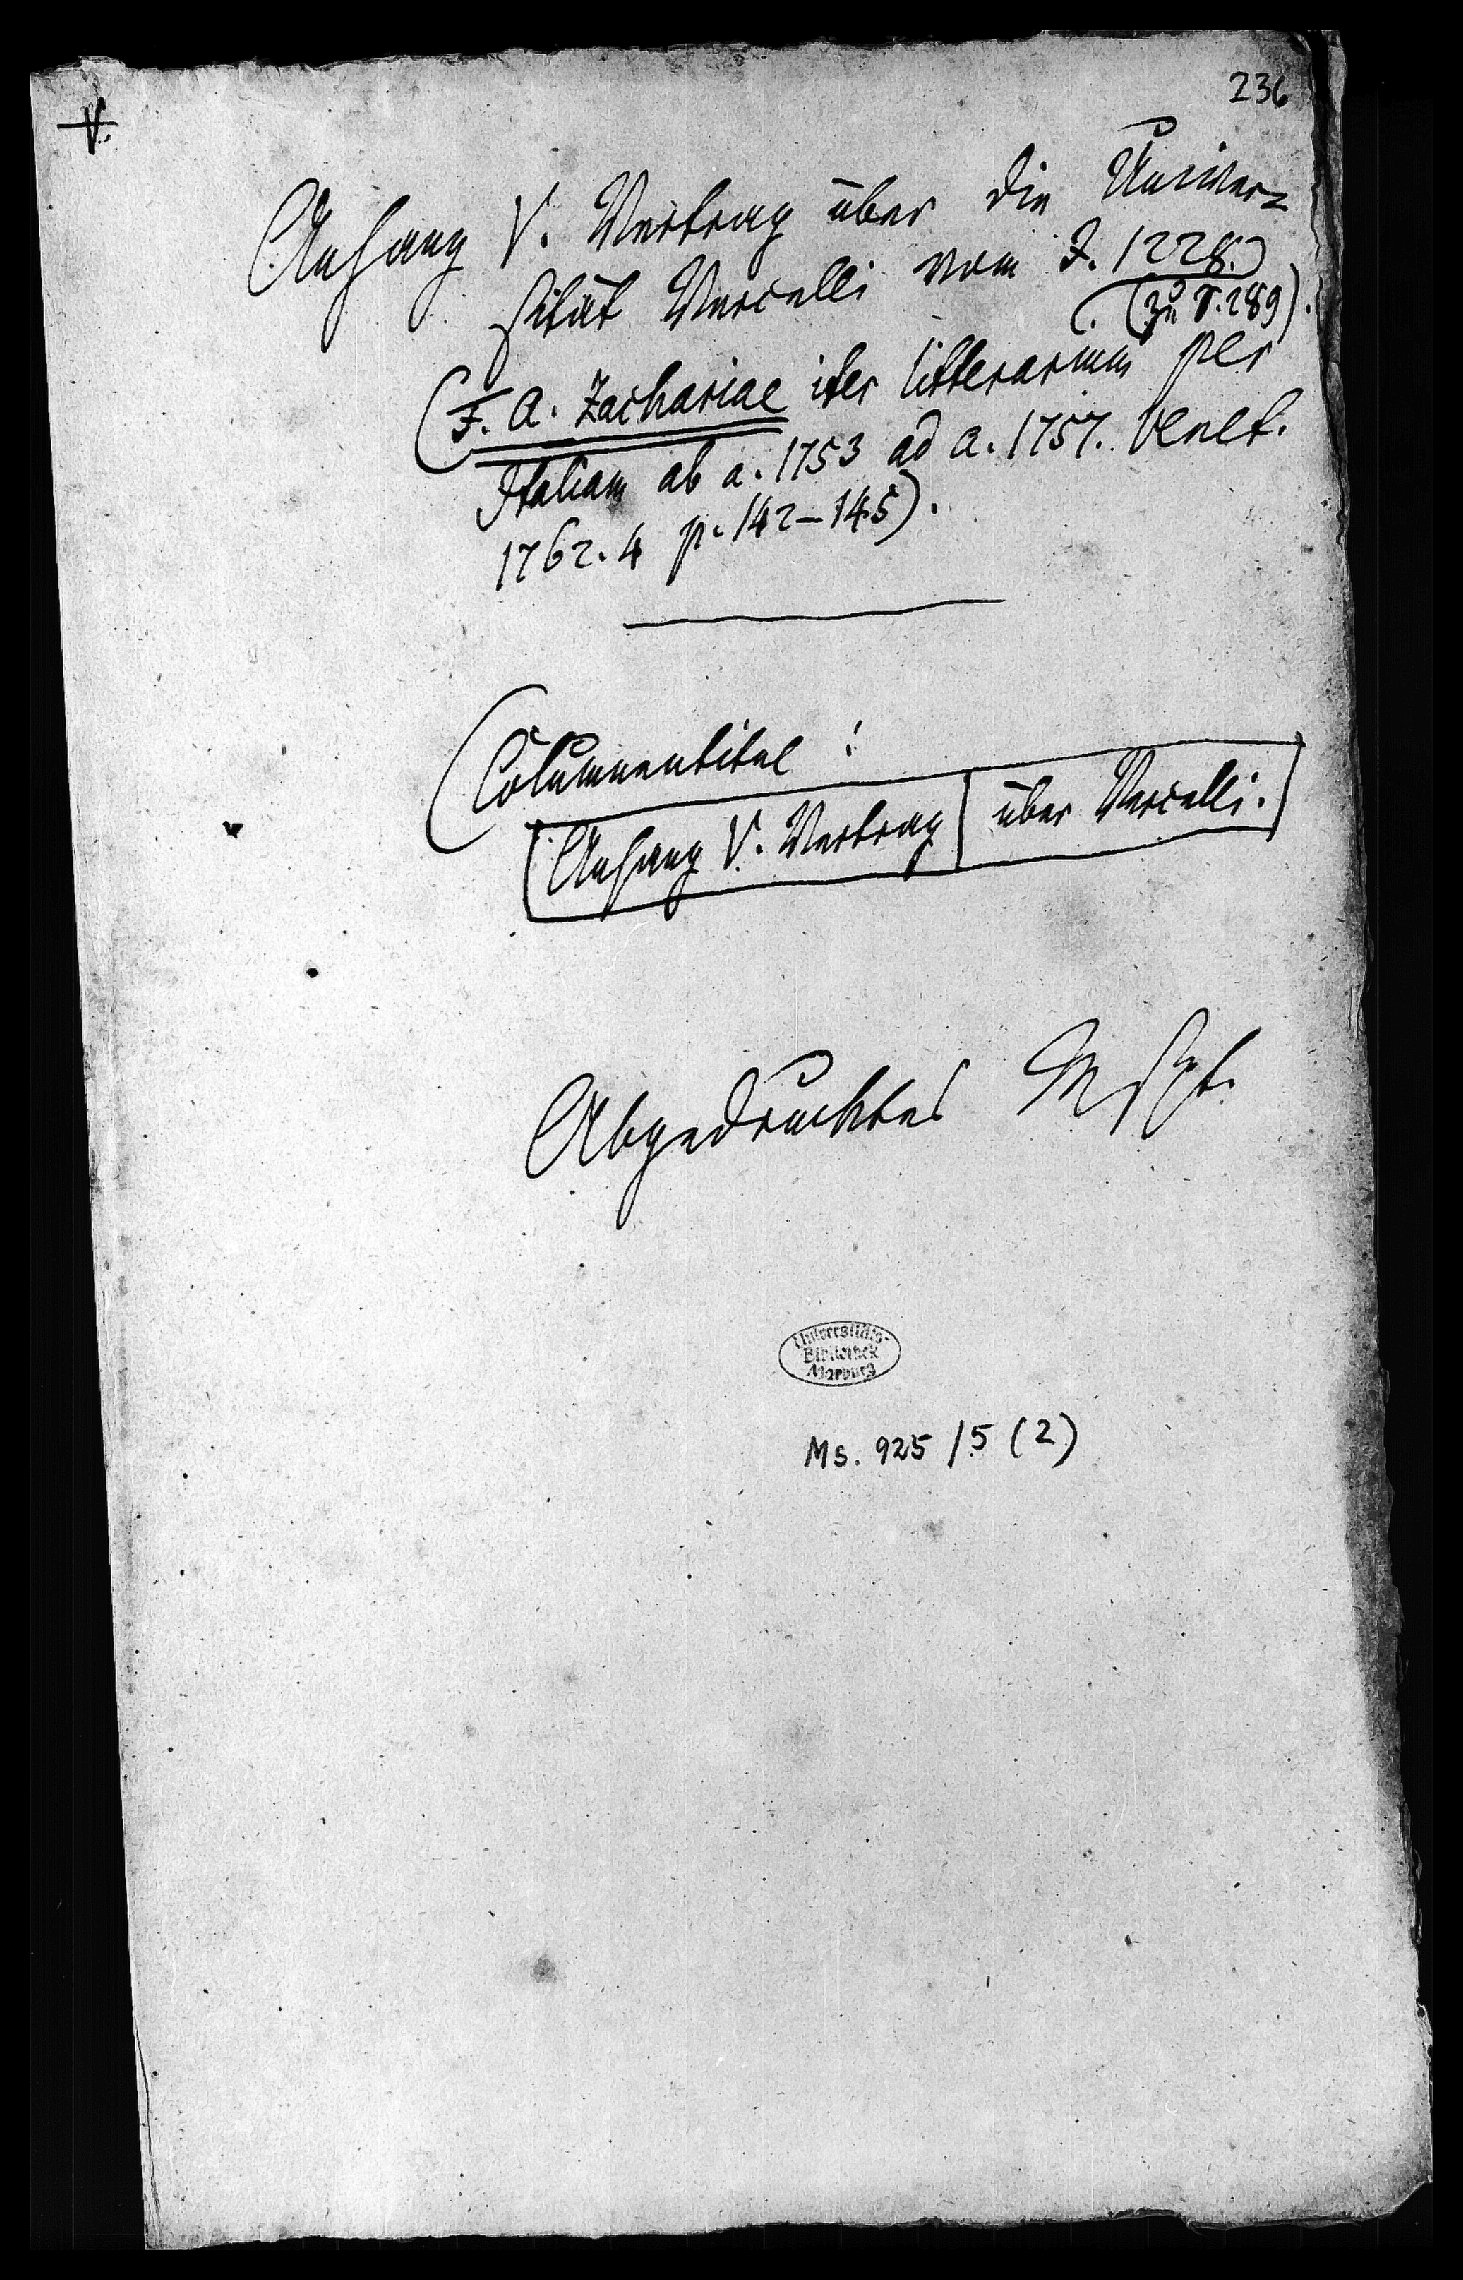 236
V.
Anhang V. Vertrag über die Univer=
sität Vercelli vom J. 1228.
(zu S. 289).
(F. A. Zachariae iter litterarium per
Italiam ab a. 1753 ad a. 1757. Venet.
1762. 4 p. 142–145).
Columnentitel:
Anhang V. Vertrag | über Vercelli.
Abgedrucktes Mspt.
Universitäts-
Bibliothek
Marburg
Ms. 925/5 (2)